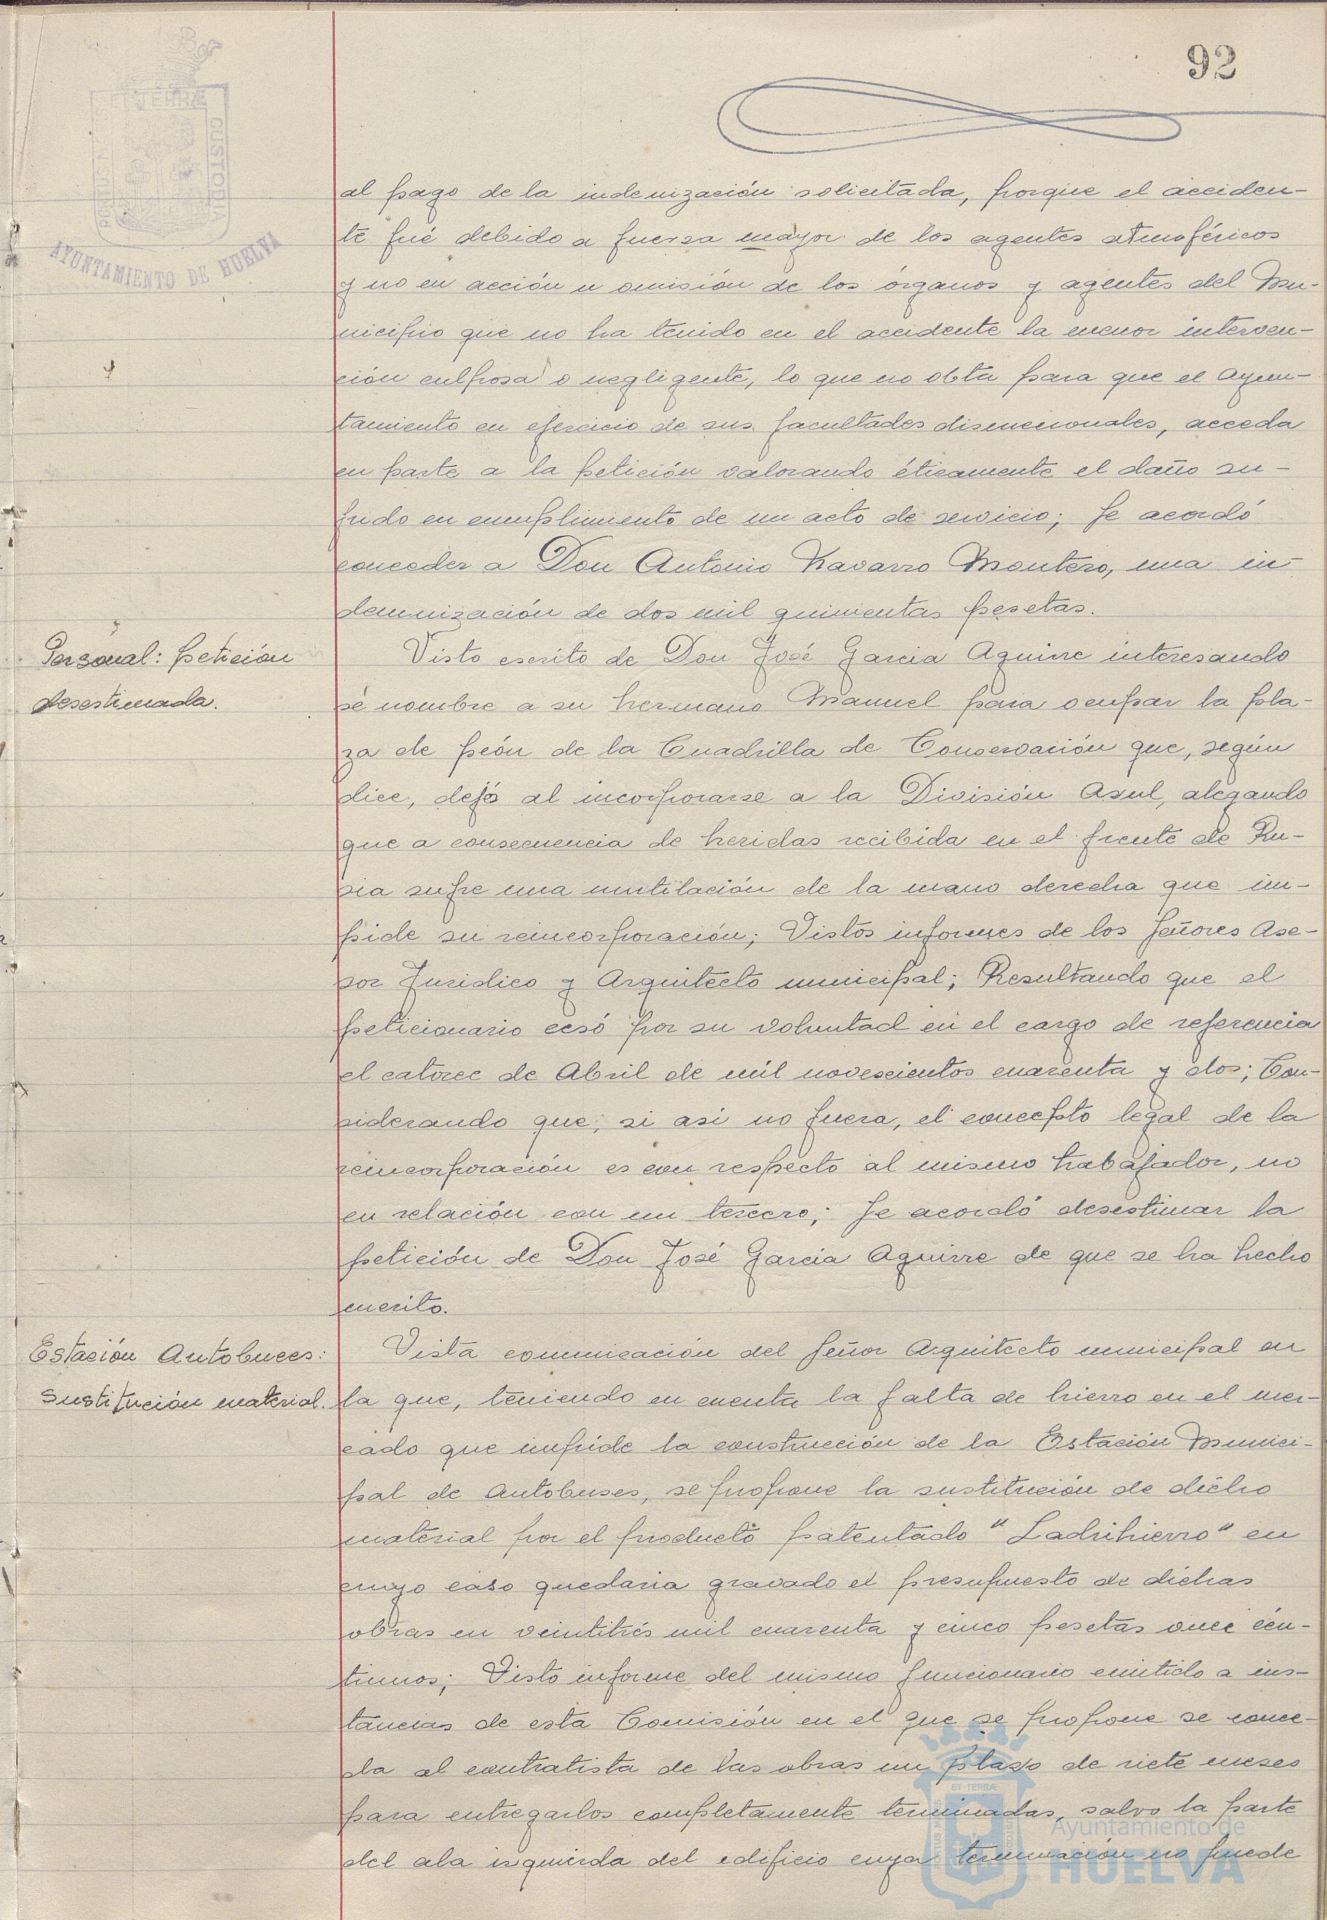 92
PORTUS MARIS ET TERRÆ CUSTODIA
AYUNTAMIENTO DE HUELVA
al pago de la indenización solicitada, porque el acciden-
te fué debido a fuerza mayor de los agentes atmoféricos
y no en acción u omisión de los órganos y agentes del Mu-
nicipio que no ha tenido en el accidente la menor interven-
ción culposa o negligente, lo que no obta para que el Ayun-
tamiento en ejercicio de sus facultades discrecionales, acceda
en parte a la petición valorando éticamente el daño su-
frido en cumplimiento de un acto de servicio; Se acordó
conceder a Don Antonio Navarro Montero, una in-
demnización de dos mil quinientas pesetas.
Personal: petición
desestimada.
Visto escrito de Don José Garcia Aguirre interesando
se nombre a su hermano Manuel para ocupar la pla-
za de peón de la Cuadrilla de Conservación que, según
dice, dejó al incorporarse a la División Azul, alegando
que a consecuencia de heridas recibida en el frente de Ru-
sia sufre una mutilación de la mano derecha que im-
pide su reincorporación; Vistos informes de los Señores Ase-
sor Juridico y Arquitecto municipal; Resultando que el
peticionario cesó por su voluntad en el cargo de referencia
el catorce de Abril de mil novescientos cuarenta y dos; Con-
siderando que, si asi no fuera, el concepto legal de la
reincorporación es con respecto al mismo trabajador, no
en relación con un tercero; Se acordó desestimar la
petición de Don José Garcia Aguirre de que se ha hecho
merito.
Estación Autobuces:
Sustitución material.
Vista comunicación del Señor Arquitecto municipal en
la que, teniendo en cuenta la falta de hierro en el mer-
cado que impide la construcción de la Estación Munici-
pal de Autobuses, se propone la sustitución de dicho
material por el producto patentado "Ladrihierro" en
cuyo caso quedaria gravado el presupuesto de dichas
obras en veintitrés mil cuarenta y cinco pesetas once cén-
timos; Visto informe del mismo funcionario emitido a ins-
tancias de esta Comisión en el que se propone se conce-
da al contratista de las obras un plazo de siete meses
para entregarlos completamente terminadas, salvo la parte
del ala izquierda del edificio cuya terminación no puede
Ayuntamiento de
HUELVA